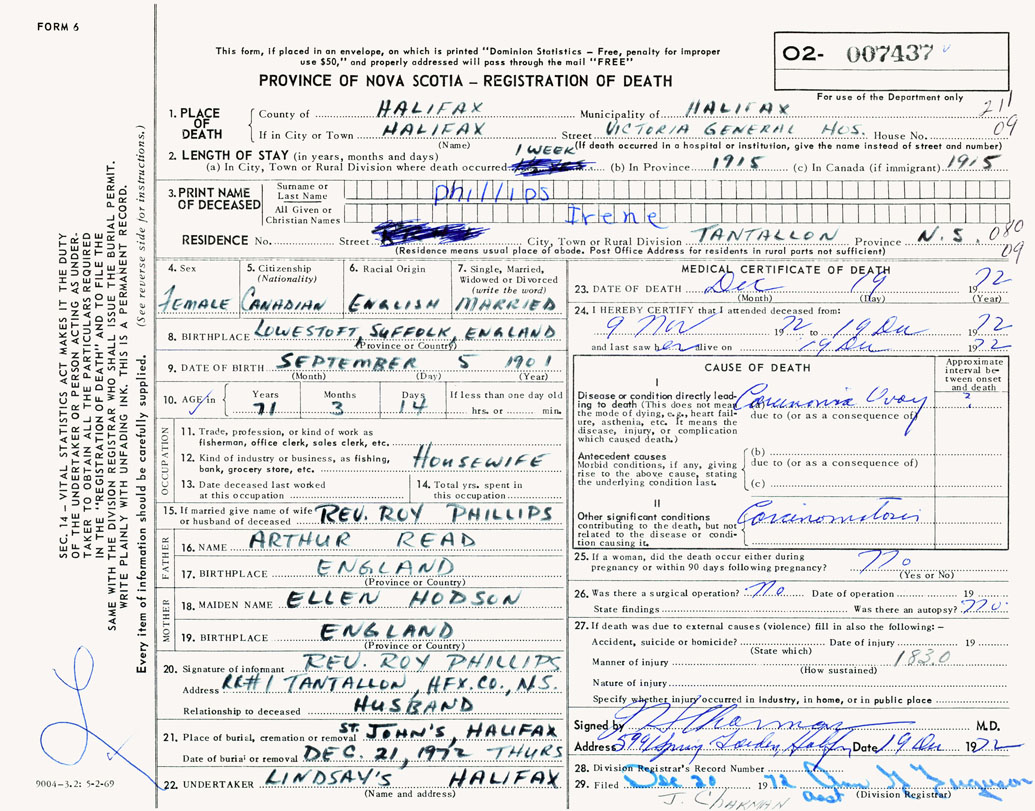 FORM 6
This form, if placed in an envelope, on which is printed "Dominion Statistics – Free, penalty for improper
use $50," and properly addressed will pass through the mail "FREE"
O2- 007437
PROVINCE OF NOVA SCOTIA – REGISTRATION OF DEATH
For use of the Department only
211
09
1. PLACE OF DEATH
County of HALIFAX Municipality of HALIFAX
If in City or Town HALIFAX Street VICTORIA GENERAL HOS. House No.
(Name) (If death occurred in a hospital or institution, give the name instead of street and number)
2. LENGTH OF STAY (in years, months and days) 1 WEEK
(a) In City, Town or Rural Division where death occurred (b) In Province 1915 (c) In Canada (if immigrant) 1915
3. PRINT NAME OF DECEASED
Surname or Last Name Phillips
All Given or Christian Names Irene
RESIDENCE No. Street City, Town or Rural Division TANTALLON Province N.S. 080
09
(Residence means usual place of abode. Post Office Address for residents in rural parts not sufficient)
4. Sex FEMALE
5. Citizenship (Nationality) CANADIAN
6. Racial Origin ENGLISH
7. Single, Married, Widowed or Divorced (write the word) MARRIED
8. BIRTHPLACE LOWESTOFT, SUFFOLK, ENGLAND
(Province or Country)
9. DATE OF BIRTH SEPTEMBER 5 1901
(Month) (Day) (Year)
10. AGE in Years Months Days If less than one day old
71 3 14 hrs. or min.
OCCUPATION
11. Trade, profession, or kind of work as
fisherman, office clerk, sales clerk, etc.
12. Kind of industry or business, as fishing,
bank, grocery store, etc. HOUSEWIFE
13. Date deceased last worked
at this occupation
14. Total yrs. spent in
this occupation
15. If married give name of wife
or husband of deceased REV. ROY PHILLIPS
FATHER
16. NAME ARTHUR READ
17. BIRTHPLACE ENGLAND
(Province or Country)
MOTHER
18. MAIDEN NAME ELLEN HODSON
19. BIRTHPLACE ENGLAND
(Province or Country)
20. Signature of informant REV. ROY PHILLIPS
Address RR#1 TANTALLON, HFX.CO., N.S.
Relationship to deceased HUSBAND
21. Place of burial, cremation or removal ST. JOHN'S, HALIFAX
Date of burial or removal DEC. 21, 1972 THURS
22. UNDERTAKER LINDSAY'S HALIFAX
(Name and address)
MEDICAL CERTIFICATE OF DEATH
23. DATE OF DEATH Dec 19 1972
(Month) (Day) (Year)
24. I HEREBY CERTIFY that I attended deceased from:
9 Nov 1972 to 19 Dec 1972
and last saw her alive on 19 Dec 1972
CAUSE OF DEATH
Approximate interval between onset and death
I
Disease or condition directly leading to death (This does not mean
the mode of dying, e.g., heart failure, asthenia, etc. It means the
disease, injury, or complication
which caused death.)
(a) Carcinoma Ovary
due to (or as a consequence of)
Antecedent causes
Morbid conditions, if any, giving
rise to the above cause, stating
the underlying condition last.
(b)
due to (or as a consequence of)
(c)
II
Other significant conditions
contributing to the death, but not
related to the disease or condition causing it.
Carcinomatosis
25. If a woman, did the death occur either during
pregnancy or within 90 days following pregnancy? No
(Yes or No)
26. Was there a surgical operation? No Date of operation 19
State findings Was there an autopsy? No
27. If death was due to external causes (violence) fill in also the following: –
Accident, suicide or homicide? Date of injury 19
(State which)
Manner of injury 183.0
(How sustained)
Nature of injury
Specify whether injury occurred in Industry, in home, or in public place
Signed by M.D.
Address 5991 Spring Garden Halifax Date 19 Dec 1972
28. Division Registrar's Record Number
29. Filed Dec 20 1972 John Ferguson
J. CHARMAN Asst (Division Registrar)
SEC. 14 – VITAL STATISTICS ACT MAKES IT THE DUTY
OF THE UNDERTAKER OR PERSON ACTING AS UNDER-
TAKER TO OBTAIN ALL THE PARTICULARS REQUIRED
IN THE "REGISTRATION OF DEATH" AND TO FILE THE
SAME WITH THE DIVISION REGISTRAR WHO SHALL ISSUE THE BURIAL PERMIT.
WRITE PLAINLY WITH UNFADING INK. THIS IS A PERMANENT RECORD.
Every item of information should be carefully supplied. (See reverse side for instructions.)
9004–3.2: 5-2-69